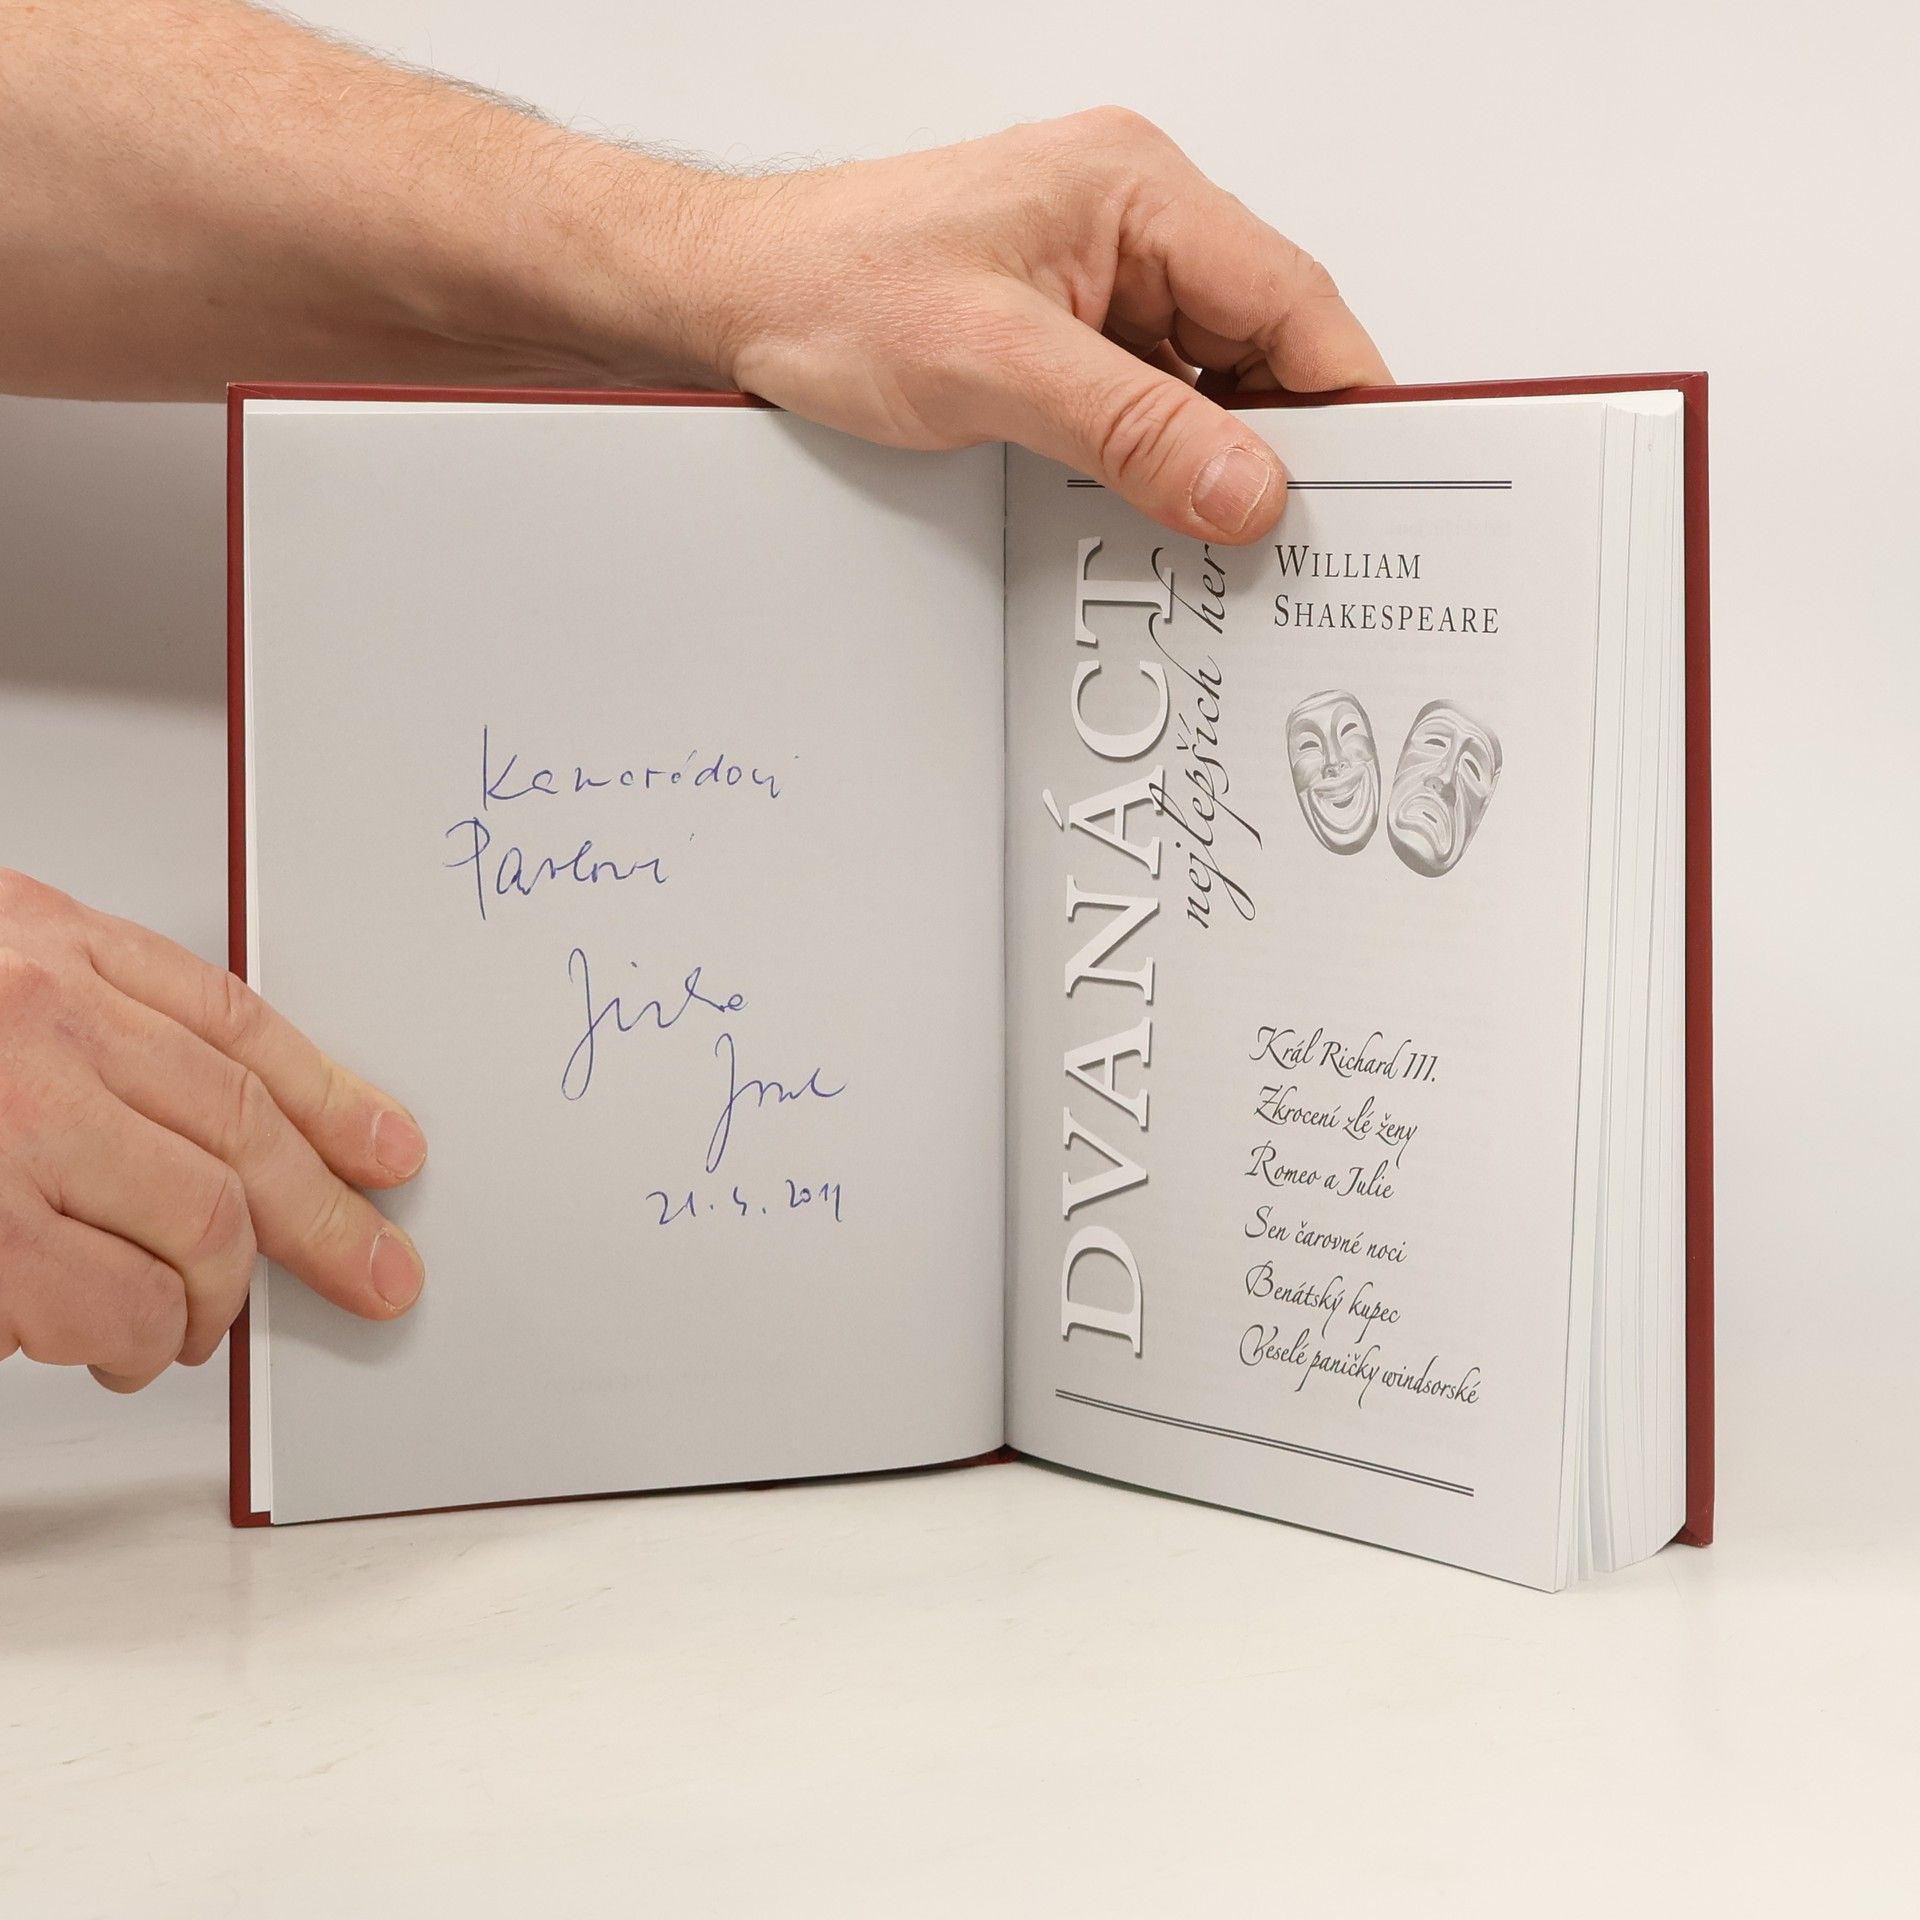 Kamarádovi
Pavlovi
Jirka
21. 5. 2011
DVANÁCT
nejlepších her
WILLIAM
SHAKESPEARE
Král Richard III.
Zkrocení zlé ženy
Romeo a Julie
Sen čarovné noci
Benátský kupec
Veselé paničky windsorské